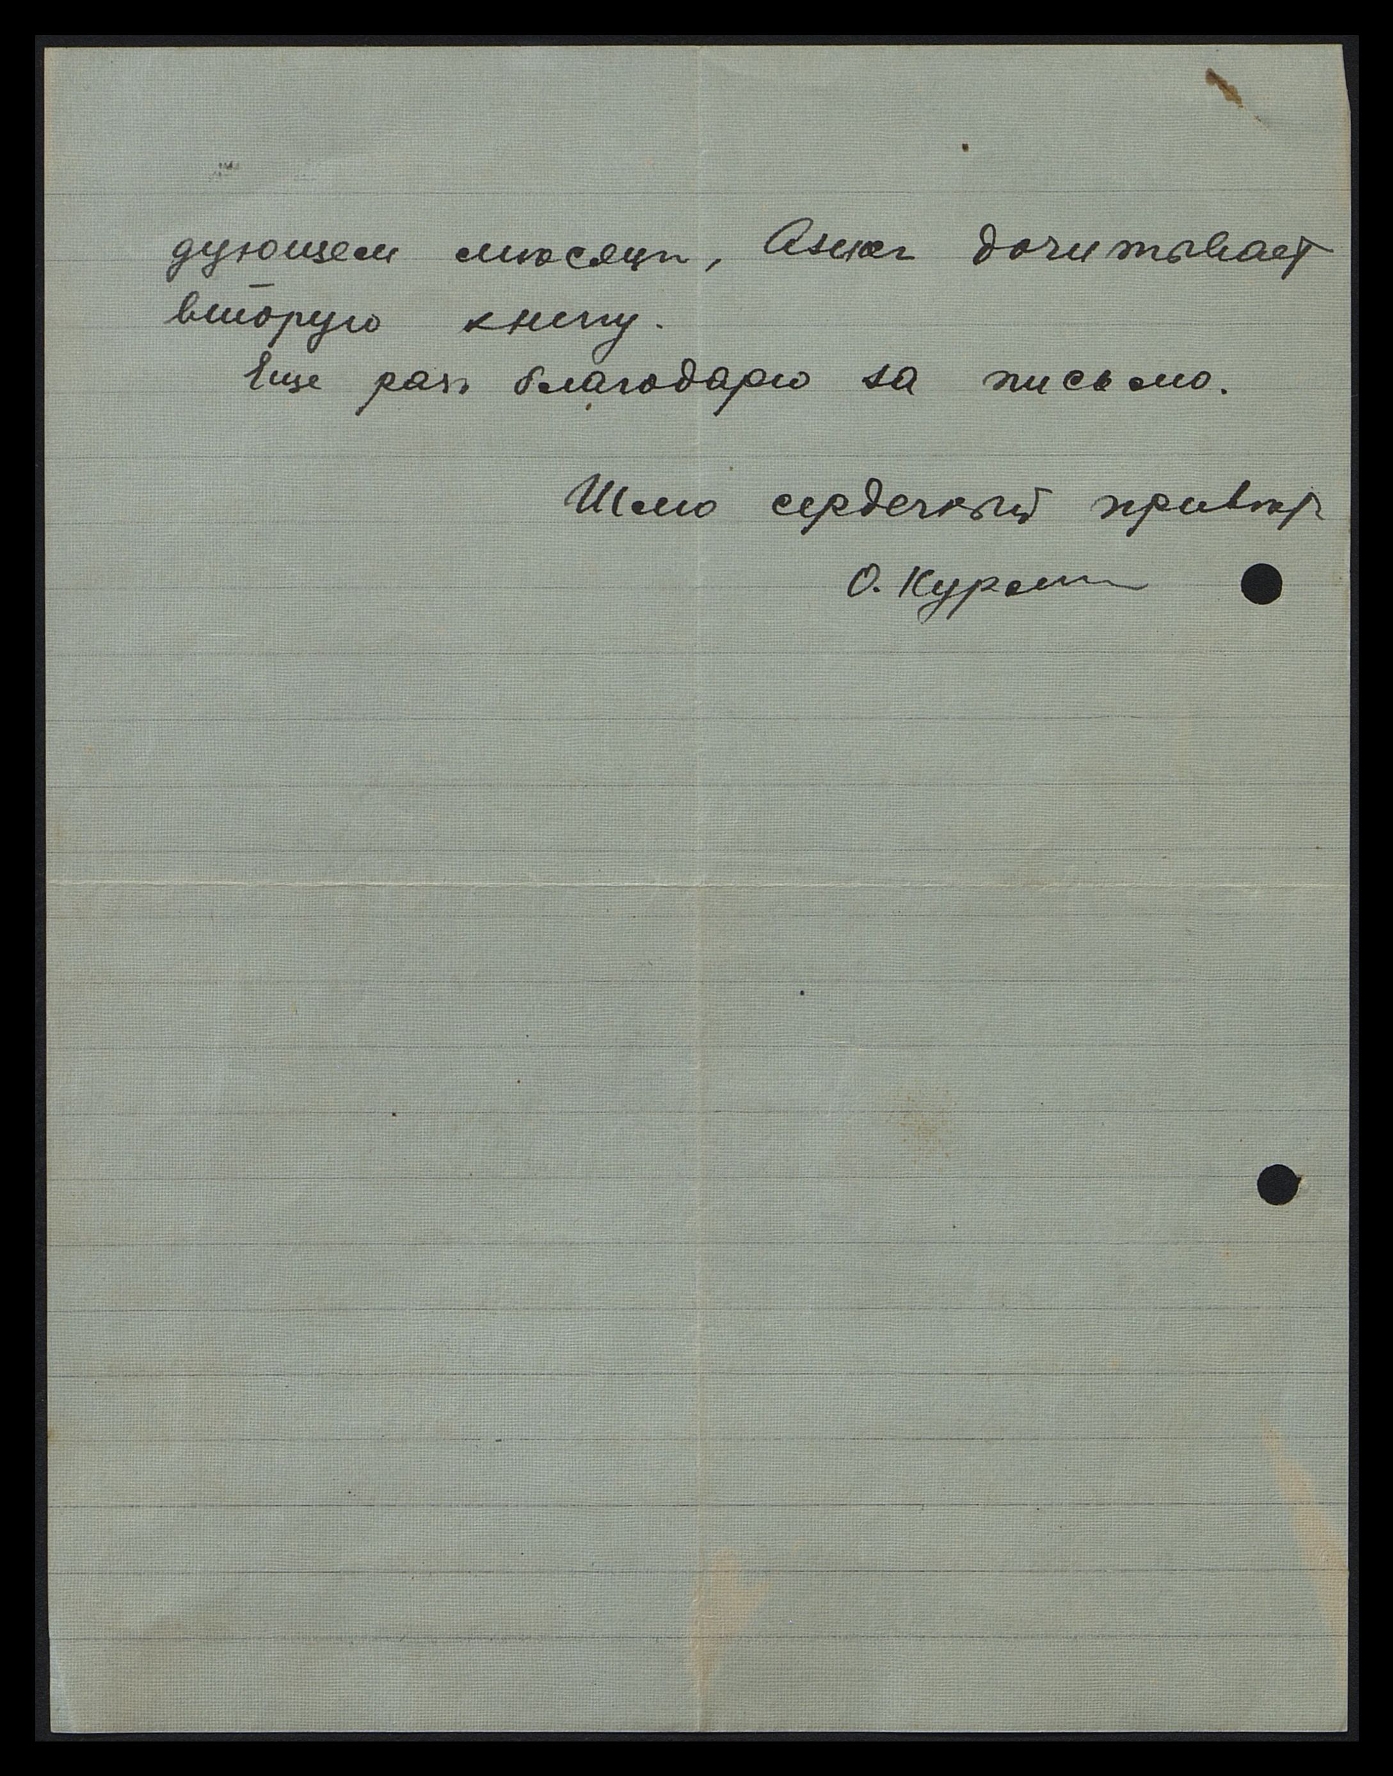 дующем мѣсяцѣ, дочитывает
вторую книгу.
Еще разъ благодарю за письмо.
Шлю сердечный привѣтъ
О. Курсин